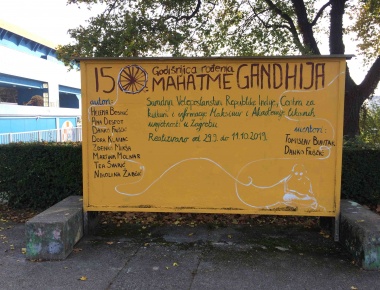 150 Godišnjica rođenja
MAHATME GANDHIJA
autori:
HELENA
ANA DESPOT
DANKO FRIŠČIĆ
DORA KLIMAC
MARTINA MOLNAR
TEA
NIKOLINA
Suradnja Veleposlanstva Republike Indije, Centra za
kulturu i informacije Maksimir i Akademije likovnih
umjetnosti u Zagrebu
Realizirano od 29.9. do 11.10.2019.
mentori:
TOMISLAV BUNTAK
DANKO FRIŠČIĆ